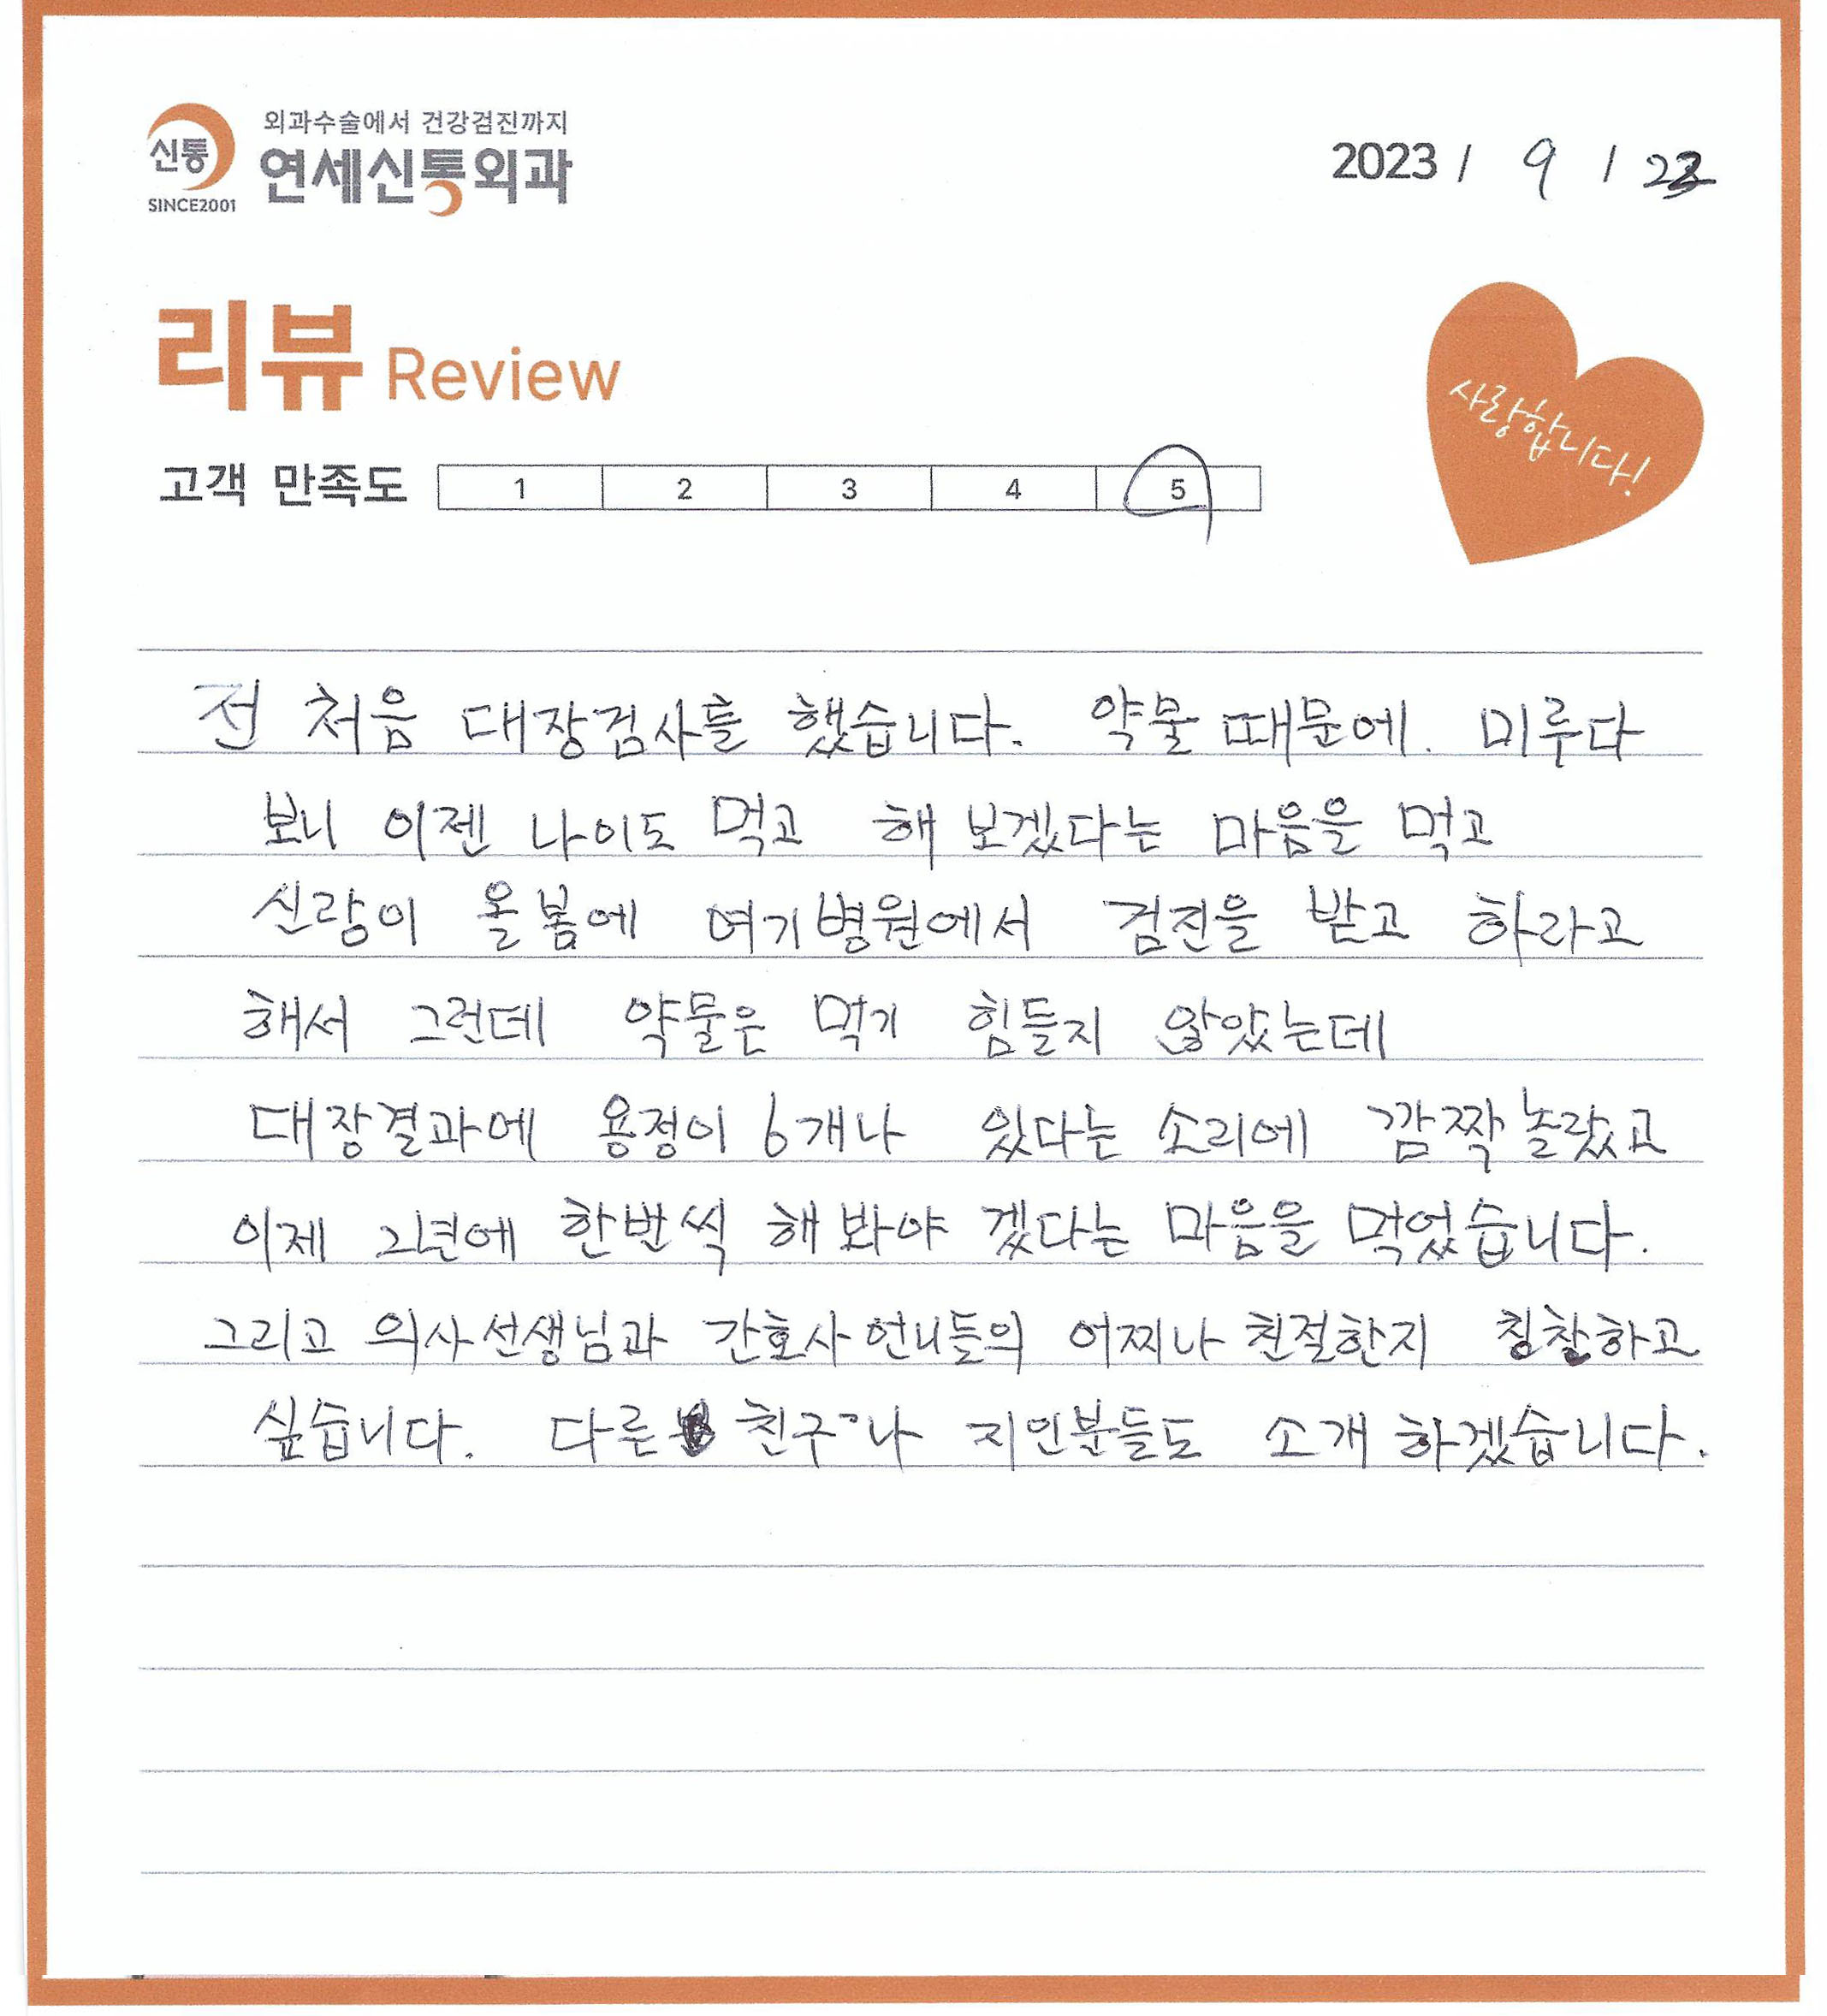 신통
SINCE2001
외과수술에서 건강검진까지
연세신통외과
2023 / 9 /
리뷰 Review
사랑합니다!
고객 만족도 1 2 3 4 5
전 처음 대장검사를 했습니다. 약물 때문에. 미루다
보니 이젠 나이도 먹고 해 보겠다는 마음을 먹고
신랑이 올봄에 여기병원에서 검진을 받고 하라고
해서 그런데 약물은 먹기 힘들지 않았는데
대장결과에 용정이 6개나 있다는 소리에 깜짝 놀랐고
이제 2년에 한번씩 해 봐야 겠다는 마음을 먹었습니다.
그리고 의사선생님과 간호사언니들의 어찌나 친절한지 칭찬하고
싶습니다. 다른 친구나 지인분들도 소개 하겠습니다.